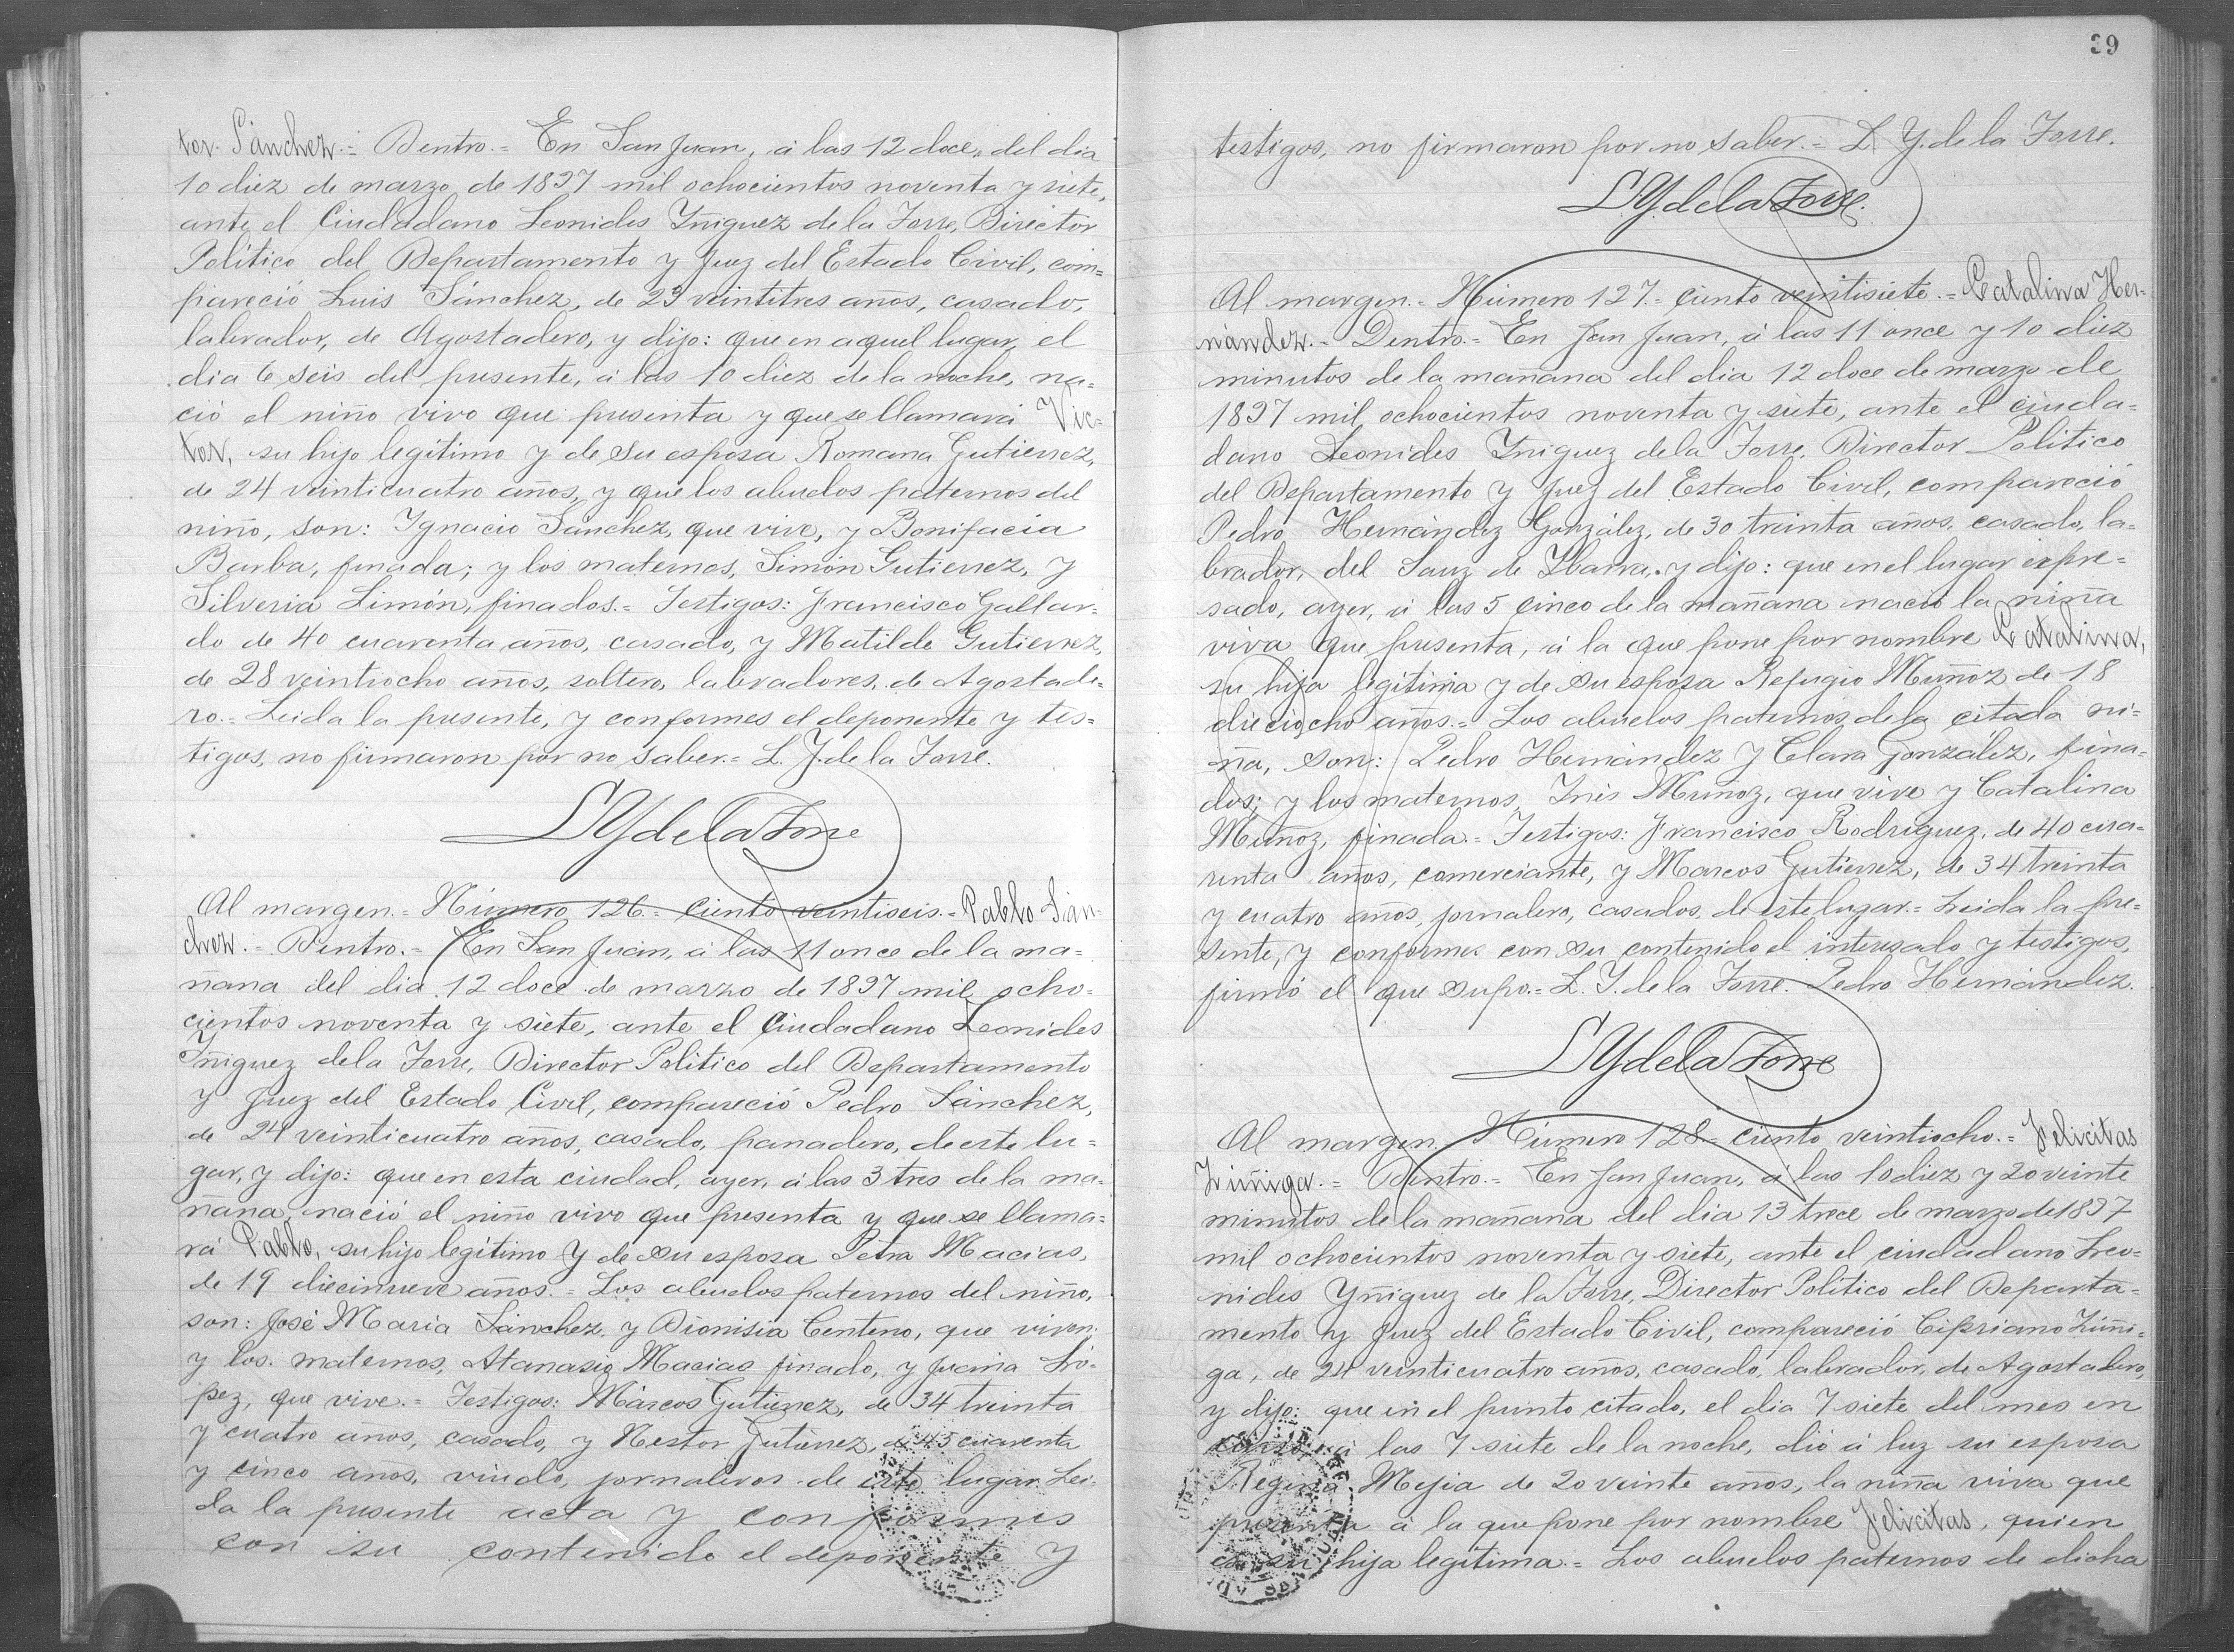 tor Sánchez.= Dentro.= En San Juan, á las 12 doce, del dia
10 diez de marzo de 1897 mil ochocientos noventa y siete,
ante el Ciudadano Leonides Yñiguez de la Torre, Director
Politico del Departamento y Juez del Estado Civil, com=
pareció Luis Sánchez, de 23 veintitres años, casado,
labrador, de Agostadero, y dijo: que en aquel lugar el
dia 6 seis del presente, á las 10 diez de la noche, na=
ció el niño vivo que presenta y que se llamará Vic=
tor, su hijo legítimo y de su esposa Romana Gutierrez,
de 24 veinticuatro años, y que los abuelos paternos del
niño, son: Ygnacio Sánchez, que vive, y Bonifacia
Barba, finada; y los maternos, Simón Gutierrez, y
Silveria Limón, finados.= Testigos: Francisco Gallar=
do de 40 cuarenta años, casado, y Matilde Gutierrez,
de 28 veintiocho años, soltero, labradores, de Agostade=
ro.= Leida la presente, y conformes el deponente y tes=
tigos, no firmaron por no saber.= L. Y. de la Torre.
LYdelaTorre
Al margen.= Número 126.= ciento veintiseis.= Pablo Sán=
chez.= Dentro.= En San Juan, á las 11 once de la ma=
ñana del dia 12 doce de marzo de 1897 mil ocho=
cientos noventa y siete, ante el Ciudadano Leonides
Yñiguez de la Torre, Director Politico del Departamento
y Juez del Estado Civil, compareció Pedro Sánchez,
de 24 veinticuatro años, casado, panadero, de este lu=
gar, y dijo: que en esta ciudad, ayer, á las 3 tres de la ma=
ñana, nació el niño vivo que presenta y que se llama=
rá Pablo, su hijo legítimo y de su esposa Petra Macias,
de 19 diecinueve años.= Los abuelos paternos del niño,
son: José Maria Sánchez, y Dionisia Centeno, que viven;
y los maternos, Atanasio Macias finado, y Ló=
pez, que vive.= Testigos: Márcos Gutierrez, de 34 treinta
y cuatro años, casado, y Nestor Gutierrez, de 45 cuarenta
y cinco años, viudo, jornaleros de este lugar. Lei=
da la presente acta y conformes
con su contenido el deponente y
39
testigos, no firmaron por no saber.= L. Y. de la Torre.
LYdelaTorre.
Al margen.= Número 127.= ciento veintisiete.= Catalina Her=
nández.= Dentro.= En San Juan, á las 11 once y 10 diez
minutos de la mañana del dia 12 doce de marzo de
1897 mil ochocientos noventa y siete, ante el ciuda=
dano Leonides Yñiguez de la Torre, Director Politico
del Departamento y Juez del Estado Civil, compareció
Pedro Hernández González, de 30 treinta años, casado, la=
brador, del Sauz de Ybarra, y dijo: que en el lugar expre=
sado, ayer, á las 5 cinco de la mañana nació la niña
viva que presenta, á la que pone por nombre Catalina,
su hija legítima y de su esposa Refugio Muñoz de 18
dieciocho años.= Los abuelos paternos de la citada ni=
ña, son: Pedro Hernández y Clara González, fina=
dos; y los maternos, Inés Muñoz, que vive y Catalina
Muñoz, finada.= Testigos: Francisco Rodríguez, de 40 cua=
renta años, comerciante, y Marcos Gutierrez, de 34 treinta
y cuatro años, jornalero, casados, de este lugar.= Leida la pre=
sente, y conformes con su contenido el interesado y testigos,
firmó el que supo.= L. Y. de la Torre. Pedro Hernández.
LYdelaTorre
Al margen. Número 128= ciento veintiocho.= Felicitas
Zúñiga.= Dentro.= En San Juan, á las 10 diez y 20 veinte
minutos de la mañana del dia 13 trece de marzo de 1897
mil ochocientos noventa y siete, ante el ciudadano Leo=
nides Yñiguez de la Torre, Director Político del Departa=
mento y Juez del Estado Civil, compareció Cipriano Zúñi=
ga, de 24 veinticuatro años, casado, labrador, de Agostadero,
y dijo: que en el punto citado, el dia 7 siete del mes en
curso á las 7 siete de la noche, dió á luz su esposa
Regina Mejia de 20 veinte años, la niña viva que
presenta á la que pone por nombre Felicitas, quien
es su hija legítima.= Los abuelos paternos de dicha